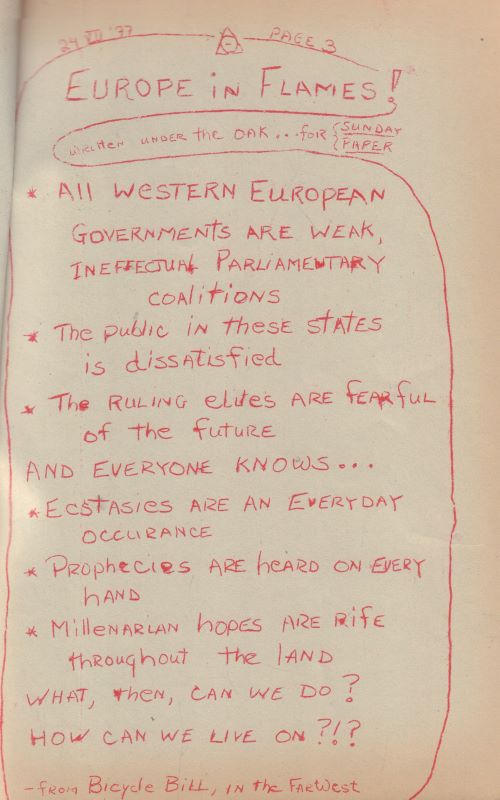 24 VII '77
PAGE 3
EUROPE IN FLAMES!
written under the OAK... for {SUNDAY PAPER
* All WESTERN EUROPEAN
GOVERNMENTS ARE WEAK,
INEFFECTUAL PARLIAMENTARY
COALITIONS
* The public in these STATES
is dissatisfied
* The RULING elites ARE feARful
of the future
AND EVERYONE KNOWS...
* ECSTASIES ARE AN EVERYDAY
OCCURANCE
* PROPHECIES ARE heARD ON EVERY
hAND
* MILLENARIAN hopes ARE Rife
throughout the lAND
WHAT, then, CAN WE DO?
HOW CAN WE LIVE ON ?!?
- from Bicycle Bill, in the FarWest